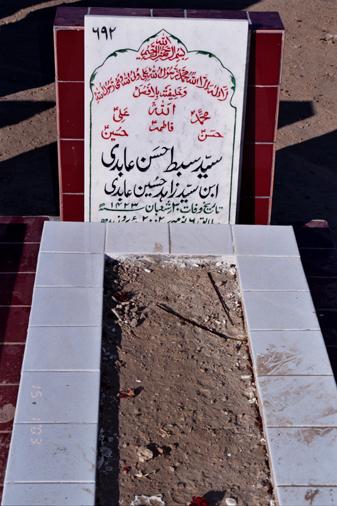 ۶۹۲
بسم اللہ الرحمن الرحیم
لا الہ الا اللہ محمد رسول اللہ علی ولی اللہ
وخلیفتہ بلا فصل
محمدؐ اللہ علیؑ
حسنؑ فاطمہؑ حسینؑ
سید سبط احسن عابدی
ابن سید زاہد حسین عابدی
تاریخ وفات ۳۰ شعبان ۱۴۲۳ھ
15.103